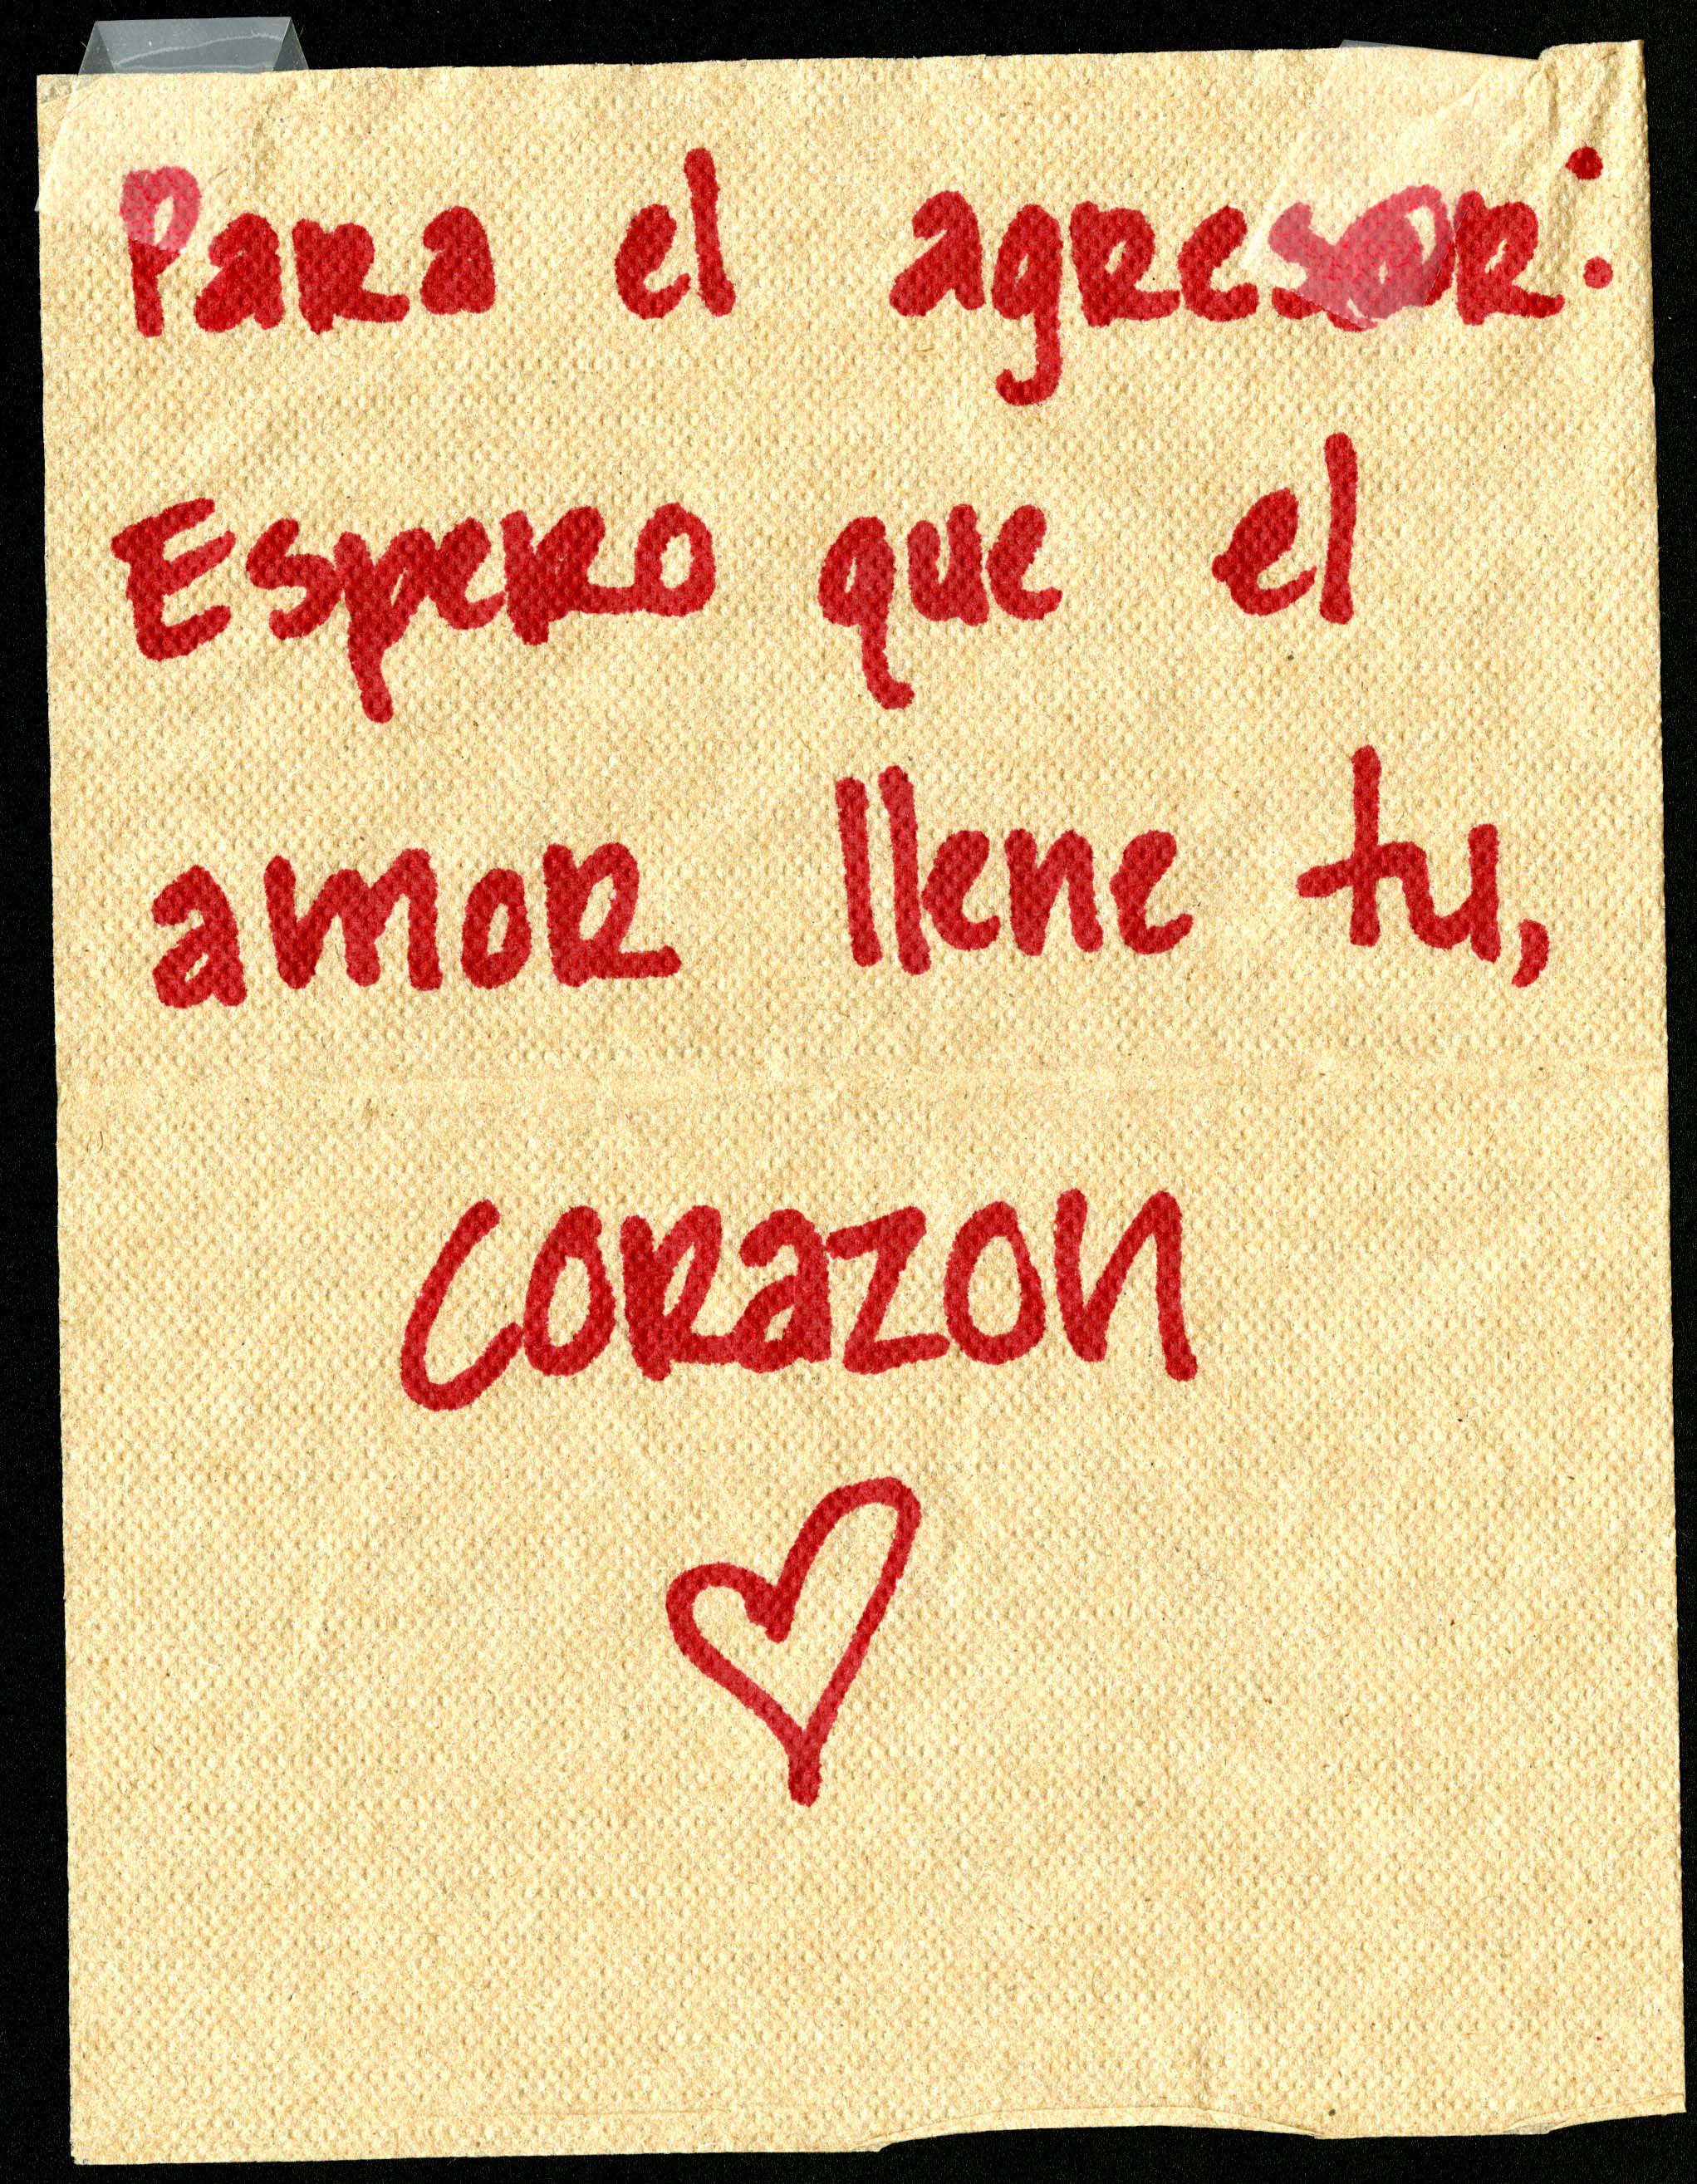 Para el agresor:
Espero que el
amor llene tu,
corazon